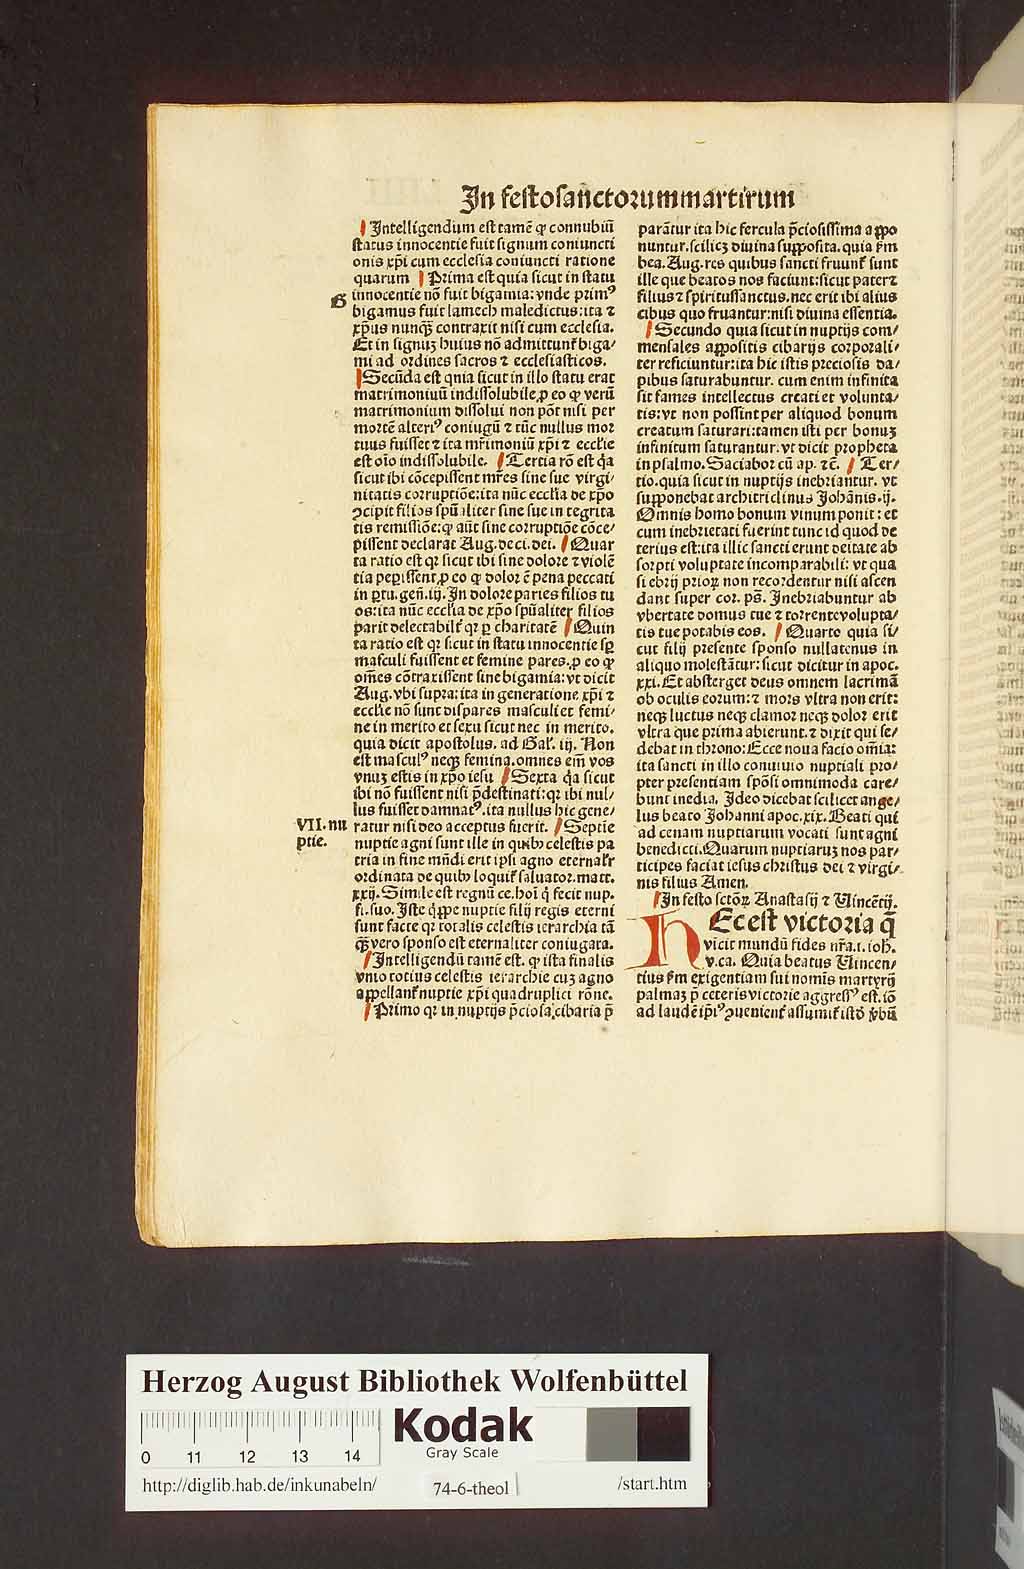 In festo sanctorum martirum
Intelligendum est tamē ꝙ connubiū
status innocentie fuit signum coniuncti
onis xp̄i cum ecclesia coniuncti ratione
quarum Prima est quia sicut in statu
G
innocentie nō fuit bigamia: vnde primꝰ
bigamus fuit lamech maledictus: ita ⁊
xp̄us nunqȝ contraxit nisi cum ecclesia.
Et in signuȝ huius nō admittunt᷑ biga/
mi ad ordines sacros ⁊ ecclesiasticos.
Secūda est qnia sicut in illo statu erat
matrimoniuū indissolubile, ꝓ eo ꝙ verū
matrimonium dissolui non pōt nisi per
mortē alteriꝰ coniugū ⁊ tūc nullus mor
tuus fuisset ⁊ ita mr̄imoniū xp̄i ⁊ eccl'ie
est oīo indissolubile. Tertia rō est q̄a
sicut ibi cōcepissent mr̄es sine sue virgi/
nitatis corruptiōe: ita nūc eccl'ia de xp̄o
ꝯcipit filios spūaliter sine sue integrita
tis remissiōe: ꝙ aūt sine corruptiōe cōce/
pissent declarat Aug. de ci. dei. Quar
ta ratio est qꝛ sicut ibi sine dolore ⁊ violē
tia peꝑissent, ꝓ eo ꝙ dolor ē pena peccati
in ꝑtu. geñ. iij. In dolore paries filios tu
os: ita nūc eccl'ia de xp̄o spūaliter filios
parit delectabilit᷑ qꝛ ꝑ charitatē Quin
ta ratio est qꝛ sicut in statu innocentie sꝑ
masculi fuissent et femine pares, ꝓ eo ꝙ
om̄es cōtraxissent sine bigamia: vt dicit
Aug. vbi supra: ita in generatione xp̄i ⁊
eccl'ie nō sunt dispares masculi et femi/
ne in merito et sexu sicut nec in merito.
quia dicit apostolus. ad Gal. iij. Non
est masculꝰ neqȝ femina. omnes em̄ vos
vnuȝ estis in xp̄o iesu Sexta q̄a sicut
ibi nō fuissent nisi p̄destinati: qꝛ ibi nul/
lus fuisset damnatꝰ. ita nullus hic gene/
ratur nisi deo acceptus fuerit. Septie
VII. nu
ptie.
nuptie agni sunt ille in quibꝰ celestis pa
tria in fine mūdi erit ipsi agno eternalr̄
ordinata de quibꝰ loquit᷑ saluator. matt.
xxij. Simile est regnū ce. hoī q̄ fecit nup.
fi. suo. Iste q̄ppe nuptie filij regis eterni
sunt facte qꝛ totalis celestis ierarchia tā
qȝ vero sponso est eternaliter coniugata.
Intelligendū tamē est. ꝙ ista finalis
vnio totius celestis ierarchie cuȝ agno
appellant᷑ nuptie xp̄i quadruplici rōne.
Primo qꝛ in nuptijs p̄ciosa; cibaria p̄
parātur ita hic fercula p̄ciosissima appo
nuntur. scilicȝ diuina supposita. quia ẜm
bea. Aug. res quibus sancti fruunt᷑ sunt
ille que beatos nos faciunt: sicut pater ⁊
filius ⁊ spiritussanctus. nec erit ibi alius
cibus quo fruantur: nisi diuina essentia.
Secundo quia sicut in nuptijs com/
mensales appositis cibarijs corporali/
ter reficiuntur: ita hic istis preciosis da/
pibus saturabuntur. cum enim infinita
sit fames intellectus creati et volunta/
tis: vt non possint per aliquod bonum
creatum saturari: tamen isti per bonuȝ
infinitum saturantur. vt dicit propheta
in psalmo. Saciabor cū ap. ⁊c̄. Ter/
tio. quia sicut in nuptijs inebriantur. vt
supponebat architriclinus Johānis. ij.
Omnis homo bonum vinum ponit: et
cum inebrietati fuerint tunc id quod de
terius est: ita illic sancti erunt deitate ab
sorpti voluptate incomparabili: vt qua
si ebrij prioꝝ non recordentur nisi ascen
dant super cor. ps̄. Inebriabuntur ab
vbertate domus tue ⁊ torrente volupta/
tis tue potabis eos. Quarto quia si/
cut filij presente sponso nullatenus in
aliquo molestātur: sicut dicitur in apoc.
xxi. Et absterget deus omnem lacrimā
ob oculis eorum: ⁊ mors vltra non erit:
neqȝ luctus neqȝ clamor neqȝ dolor erit
vltra que prima abierunt. ⁊ dixit qui se/
debat in throno: Ecce noua facio om̄ia:
ita sancti in illo conuiuio nuptiali pro/
pter presentiam spōsi omnimoda care/
bunt inedia. Ideo dicebat scilicet ange/
lus beato Johanni apoc. xix. Beati qui
ad cenam nuptiarum vocati sunt agni
benedicti. Quarum nuptiaruȝ nos par/
ticipes faciat iesus christus dei ⁊ virgi/
nis filius Amen.
In festo sctōꝝ Anastasij ⁊ Vincētij.
Hec est victoria q̄
vicit mundū fides nr̄a. i. ioh.
v. ca. Quia beatus Vincen/
tius ẜm exigentiam sui nomīs martyrij
palmaȝ p̄ ceteris victorie aggressꝰ est. iō
ad laudē ip̄iꝰ ꝯuenient᷑ assumit᷑ istō ꝟbū
Herzog August Bibliothek Wolfenbüttel
0 11 12 13 14
Kodak
Gray Scale
http://diglib.hab.de/inkunabeln/
74-6-theol
/start.htm